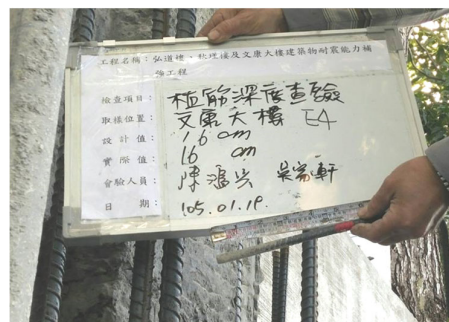 工程名稱：弘道樓、敬理樓及文康大樓建築物耐震能力補
強工程
檢查項目：植筋深度查驗
取樣位置：文康大樓 E4
設計值：16 cm
實際值：16 cm
會驗人員：陳鴻兴 吳富軒
日期：105.01.19.